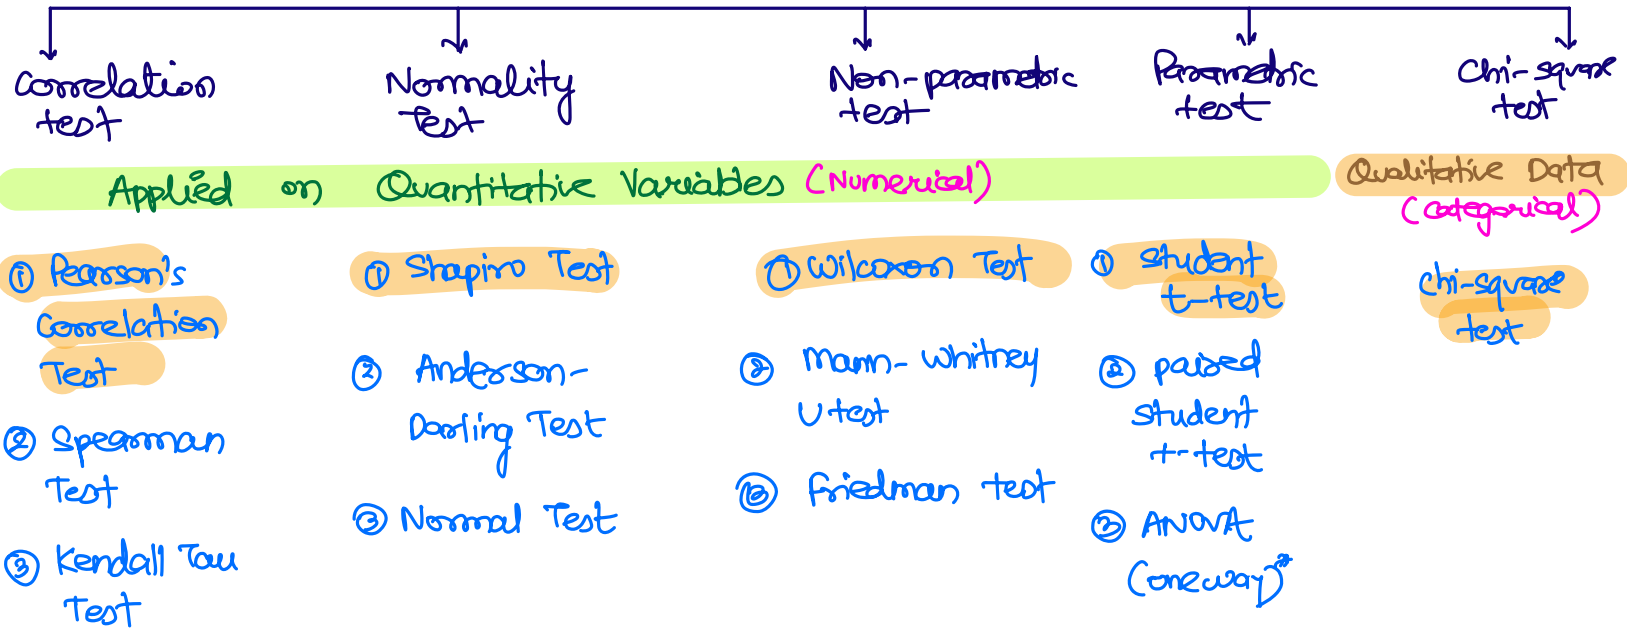 Correlation test
Normality Test
Non-parametric test
Parametric test
Chi-square test
Applied on Quantitative Variables (Numerical)
Qualitative Data
(Categorical)
① Pearson's
Correlation
Test
② Spearman
Test
③ Kendall Tau
Test
① Shapiro Test
② Anderson-
Darling Test
③ Normal Test
① Wilcoxon Test
② Mann-Whitney
U test
③ Friedman test
① Student
t-test
② paired
student
t-test
③ ANOVA
(one way)*
Chi-square
test